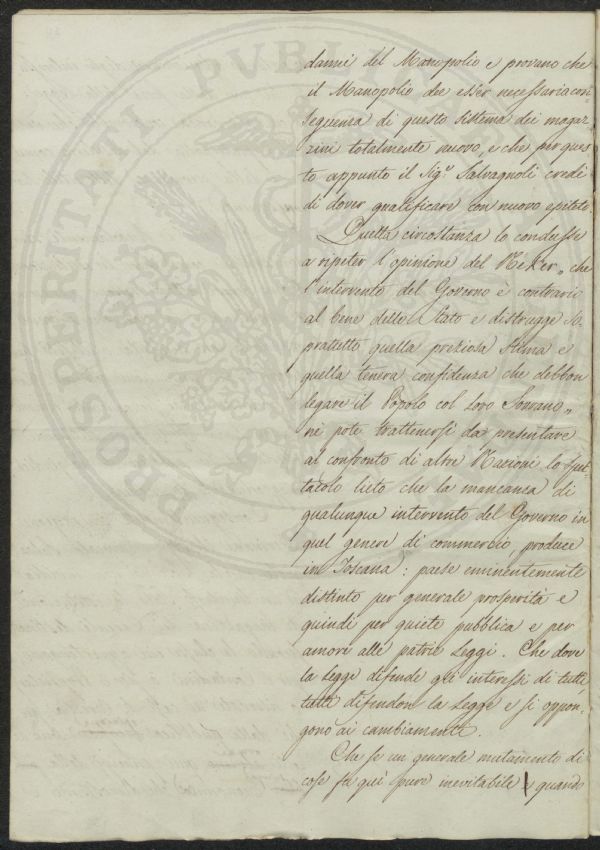 danni del Manopolio e provano che
il Manopolio dee esser necessaria con
seguenza di questo sistema dei magaz
zini totalmente nuovo, e che per ques
to appunto il Sigr. Salvagnoli credé
di dover qualificare con nuovo epiteto.
Quella circostanza lo condusse
a ripeter l'opinione del Neker, che
l'intervento del Governo è contrario
al bene dello Stato e distrugge so
prattutto quella preziosa stima e
quella tenera confidenza che debbon
legare il Popolo col loro Sovrano„
né poté trattenersi da presentare
al confronto di altre Nazioni lo spet
tacolo lieto che la mancanza di
qualunque intervento del Governo in
quel genere di commercio, produce
in Toscana: paese eminentemente
distinto per generale prosperità e
quindi per quiete pubblica e per
amori alle patrie Leggi. Che dove
la Legge difende gli interessi di tutti,
tutti difendon la Legge e si oppon-
gono ai cambiamenti.
Che se un generale mutamento di
cose fu quì pure inevitabile e quando
PROSPERITATI PVBLICAE